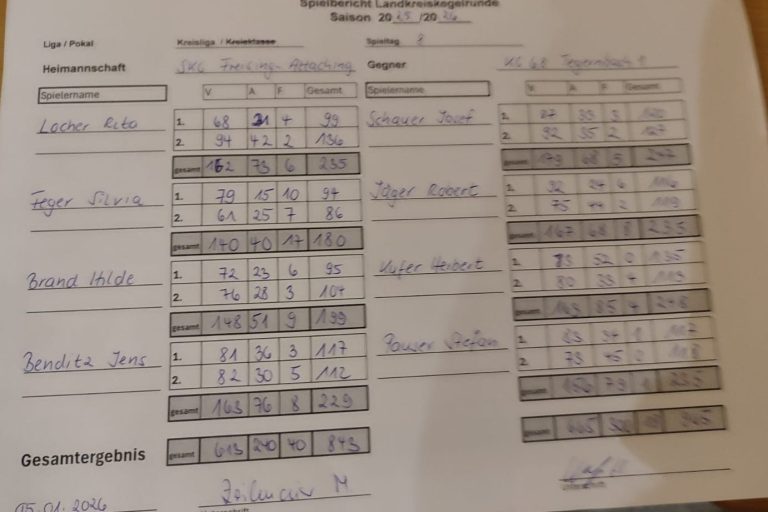 Spielbericht Landkreiskegelrunde
Saison 2025/2026
Liga / Pokal Kreisliga / Kreisklasse Spieltag 8
Heimannschaft SKC Freising-Attaching Gegner KC 68 Tegernbach 1
Spielername V A F Gesamt Spielername V A F Gesamt
Locher Rita 1. 68 31 4 99 Schauer Josef 1.
2. 94 42 2 136 2. 92 35 2 127
gesamt 162 73 6 235 gesamt 179 68 5 247
Feger Silvia 1. 79 15 10 94 Jäger Robert 1. 92 24 116
2. 61 25 7 86 2. 75 44 2 119
gesamt 140 40 17 180 gesamt 167 68 8 235
Brand Hilde 1. 72 23 6 95 Kufer Herbert 1. 52 0 135
2. 76 28 3 104 2. 80 33 4 113
gesamt 148 51 9 199 gesamt 163 85 4 248
Benditz Jens 1. 81 36 3 117 Pauser Stefan 1. 83 34 1 117
2. 82 30 5 112 2. 73 45 0 118
gesamt 163 76 8 229 gesamt 156 79 1 235
Gesamtergebnis gesamt 613 240 40 843 gesamt 665 965
05.01.2026